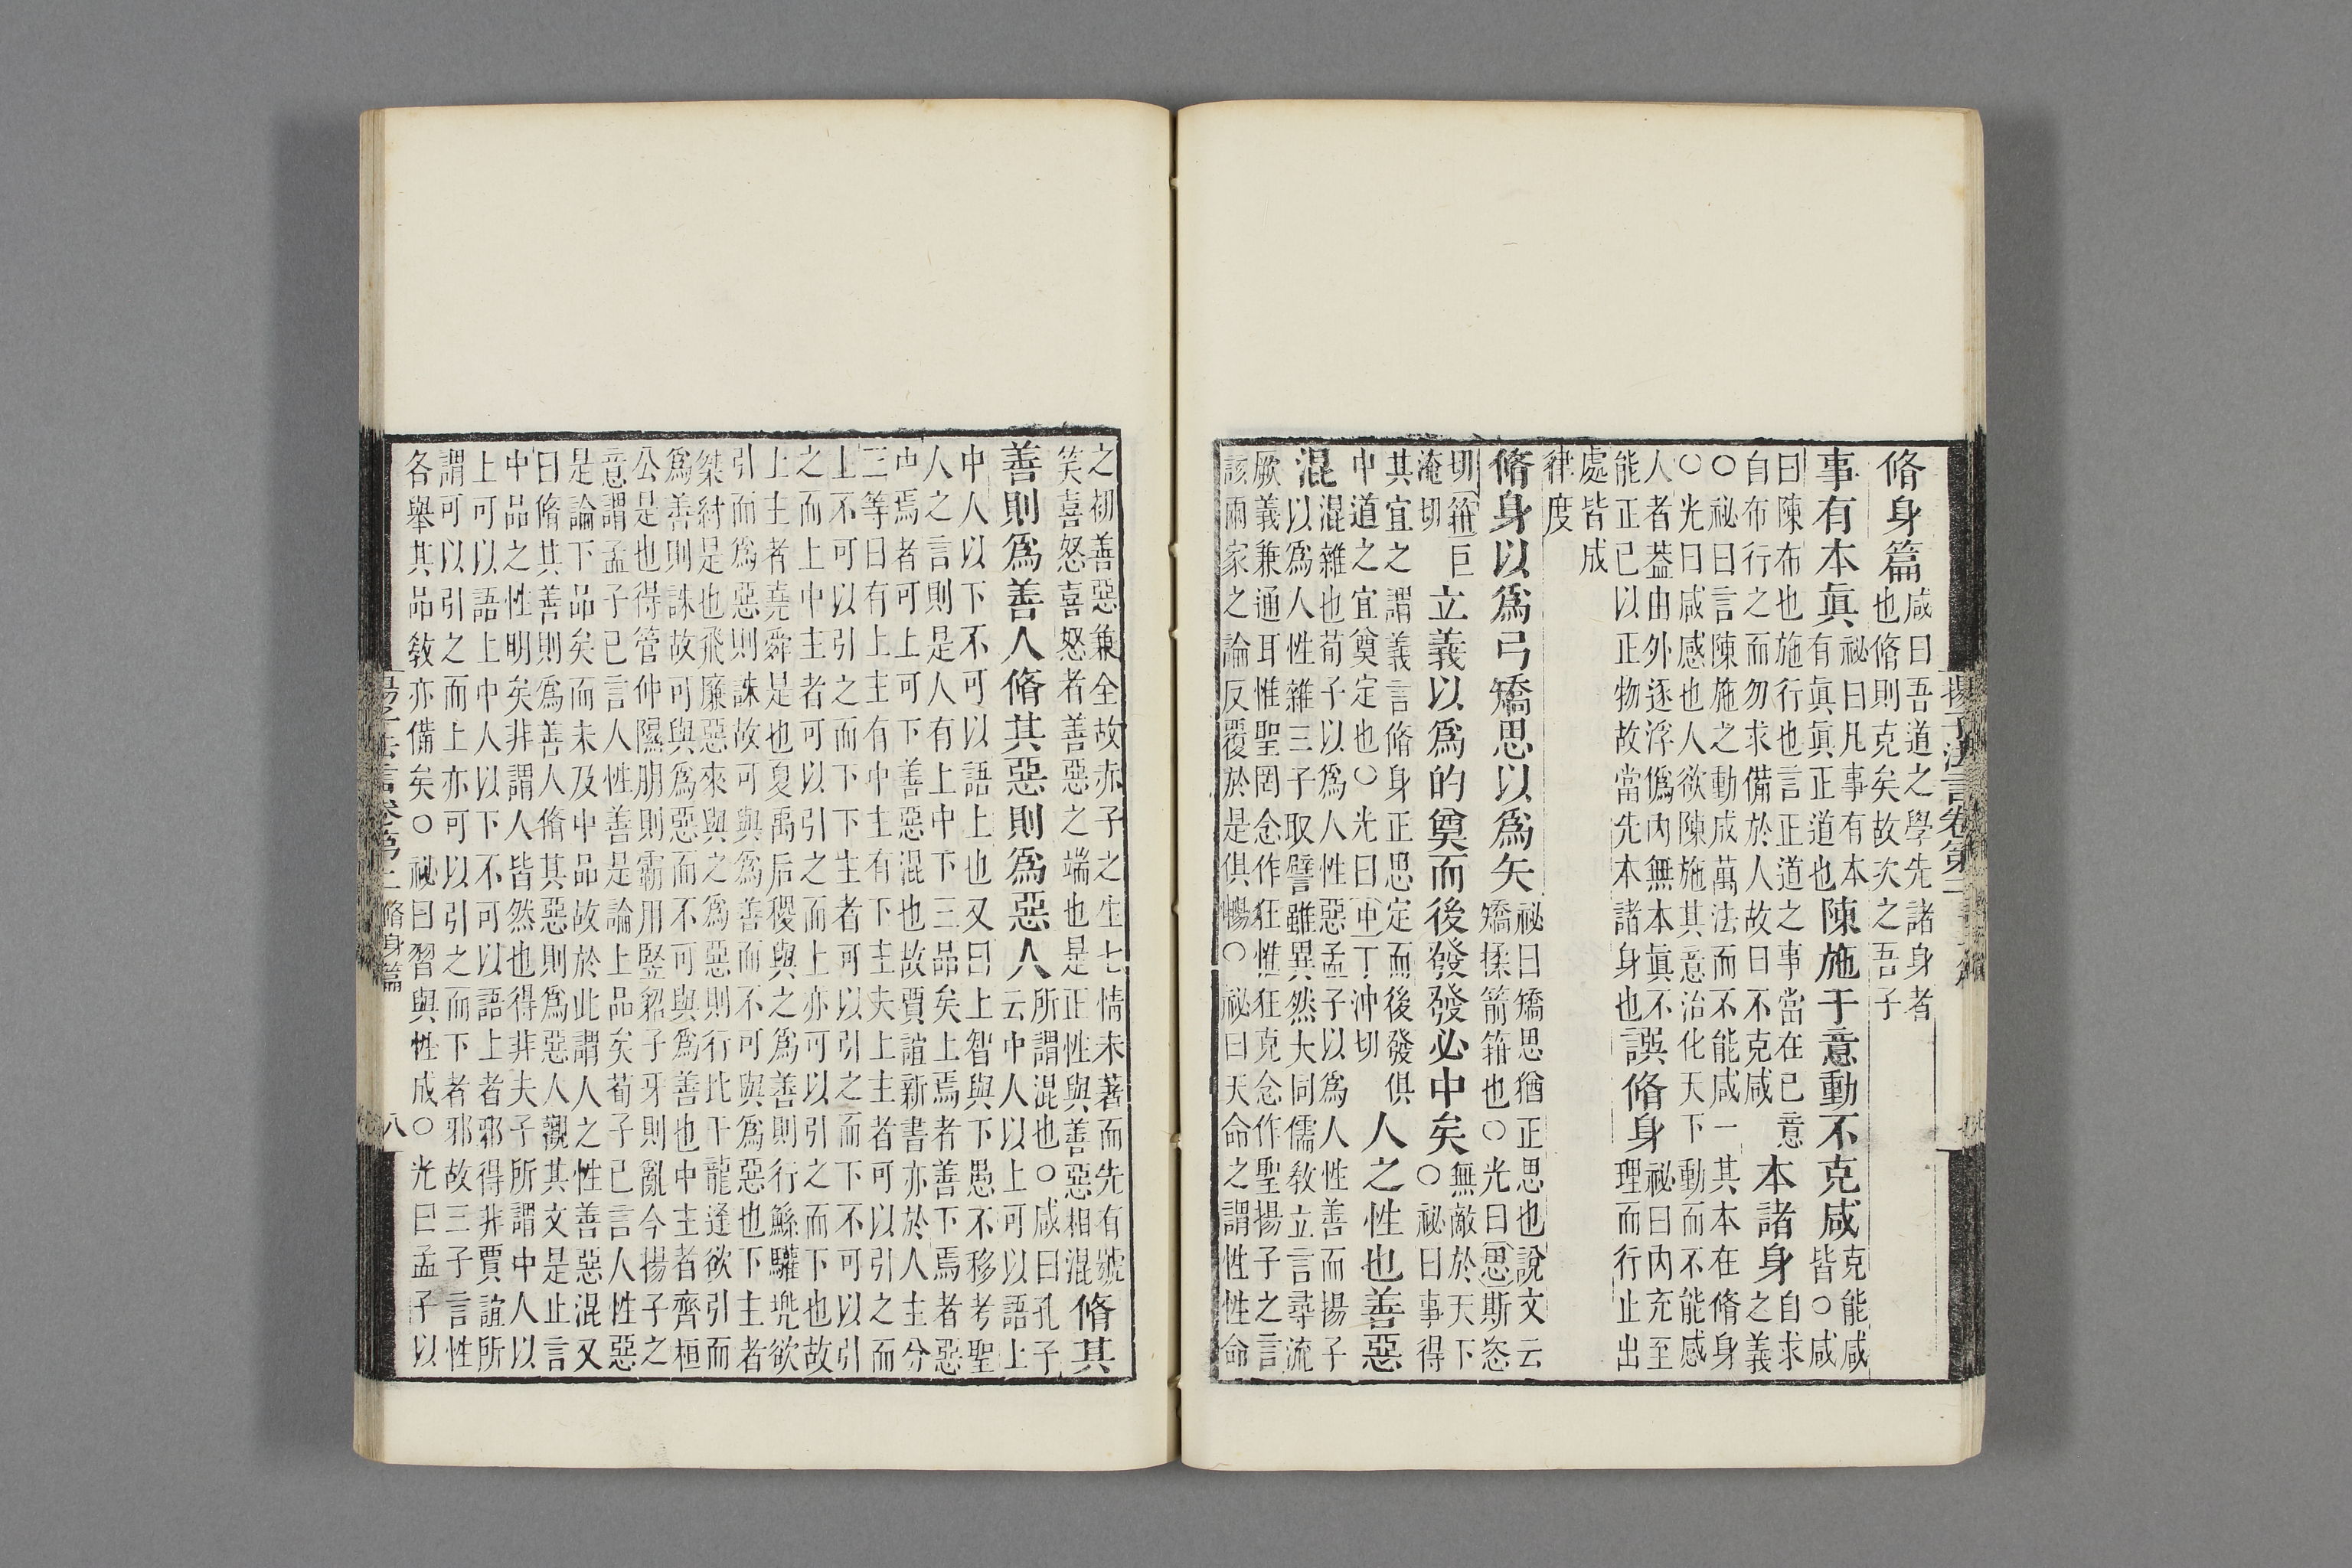 揚子法言卷第二
脩身篇咸曰吾道之學先諸身者
也脩則克矣故次之吾子
事有本眞祕曰凡事有本
有眞眞正道也陳施于意動不克咸克能咸
皆○咸
曰陳布也施行也言正道之事當在已意
自布行之而勿求備於人故曰不克咸本諸身自求
之義
○祕曰言陳施之動成萬法而不能咸一其本在脩身
○光曰咸感也人欲陳施其意治化天下動而不能感
人者葢由外逐浮僞內無本眞不
能正已以正物故當先本諸身也誤脩身祕曰內充至
理而行止出
處皆成
律度
脩身以爲弓矯思以爲矢祕曰矯思猶正思也說文云
矯揉箭箝也○光曰思斯恣
切箝巨
淹切立義以爲的奠而後發發必中矣無敵於天下
○祕曰事得
其宜之謂義言脩身正思定而後發俱
中道之宜奠定也○光曰中丁沖切人之性也善惡
混混雜也荀子以爲人性惡孟子以爲人性善而揚子
以爲人性雜三子取譬雖異然大同儒敎立言尋流
厥義兼通耳惟聖罔念作狂惟狂克念作聖揚子之言
該兩家之論反覆於是俱暢○祕曰天命之謂性性命
之初善惡兼全故赤子之生七情未著而先有號
笑喜怒喜怒者善惡之端也是正性與善惡相混脩其
善則爲善人脩其惡則爲惡人所謂混也○咸曰孔子
云中人以上可以語上
中人以下不可以語上也又曰上智與下愚不移考聖
人之言則是人有上中下三品矣上焉者善下焉者惡
中焉者可上可下善惡混也故賈誼新書亦於人主分
三等曰有上主有中主有下主夫上主者可以引之而
上不可以引之而下下生者可以引之而下不可以引
之而上中主者可以引之而上亦可以引之而下也故
上主者堯舜是也夏禹后稷與之爲善則行鯀驩兜欲
引而爲惡則誅故可與爲善而不可與爲惡也下主者
桀紂是也飛廉惡來與之爲惡則行比干龍逢欲引而
爲善則誅故可與爲惡而不可與爲善也中主者齊桓
公是也得管仲隰朋則霸用竪貂子牙則亂今揚子之
意謂孟子已言人性善是論上品矣荀子已言人性惡
是論下品矣而未及中品故於此謂人之性善惡混又
曰脩其善則爲善人脩其惡則爲惡人觀其文是止言
中品之性明矣非謂人皆然也得非夫子所謂中人以
上可以語上中人以下不可以語上者邪得非賈誼所
謂可以引之而上亦可以引之而下者邪故三子言性
各舉其品敎亦備矣○祕曰習與性成○光曰孟子以
揚子法言卷第二 脩身篇 八